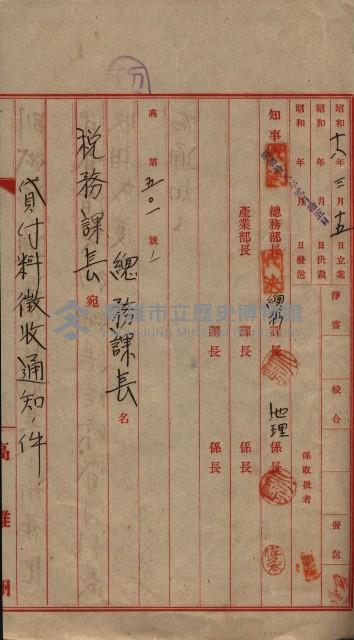 昭和十八年三月十五日立案 淨書 校合 發送
昭和 年 月 日決裁
昭和 年 月 日發送 係取扱者
知事 總務部長 總務課長 地理係長
產業部長 課長 係長
課長 係長
高第五〇一號ノ
總務課長名
稅務課長宛
貸付料徵收通知ノ件
高雄州
高雄市立歷史博物館
KAOHSIUNG MUSEUM OF HISTORY